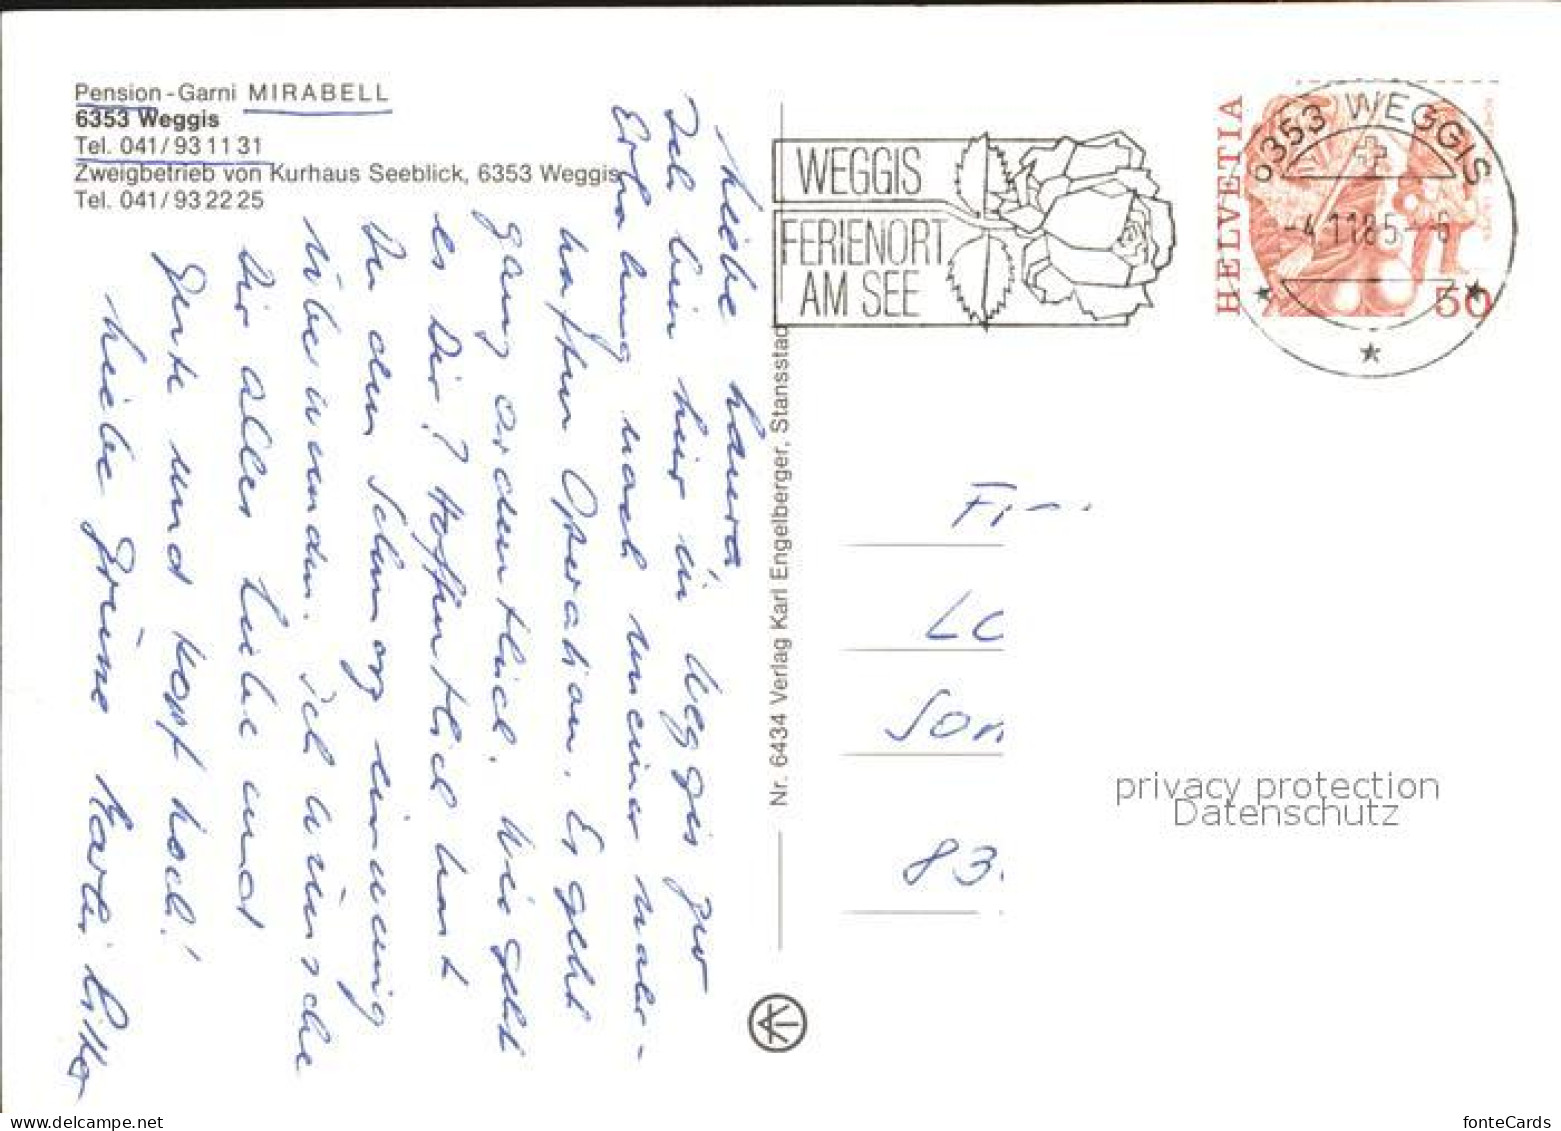 Pension-Garni MIRABELL
6353 Weggis
Tel. 041/93 11 31
Zweigbetrieb von Kurhaus Seeblick, 6353 Weggis
Tel. 041/93 22 25
Liebe Laura
Ich bin hier in Weggis zur
Erholung nach meiner
haften Operation. Es geht
ganz ordentlich. Wie geht
es Dir? Hoffentlich hast
Du den Schmerz ein wenig
überwunden. Ich wünsche
Dir alles Liebe und
Gute und Kopf hoch!
Liebe Grüsse
Nr. 6434 Verlag Karl Engelberger, Stansstad
WEGGIS
FERIENORT
AM SEE
HELVETIA
50
6353 WEGGIS
-4.11.85-
83.
privacy protection
Datenschutz
delcampe.net
fonteCards